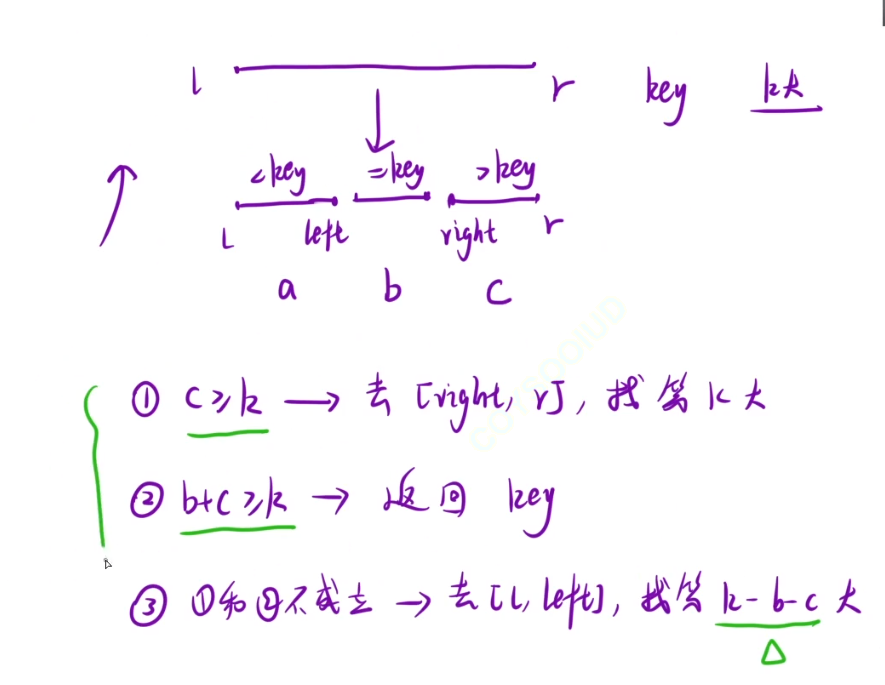 l r key k大
<key =key >key
l left right r
a b c
① c≥k → 去 [right, r], 找第 k 大
② b+c≥k → 返回 key
③ ①和②不成立 → 去 [l, left], 找第 k-b-c 大